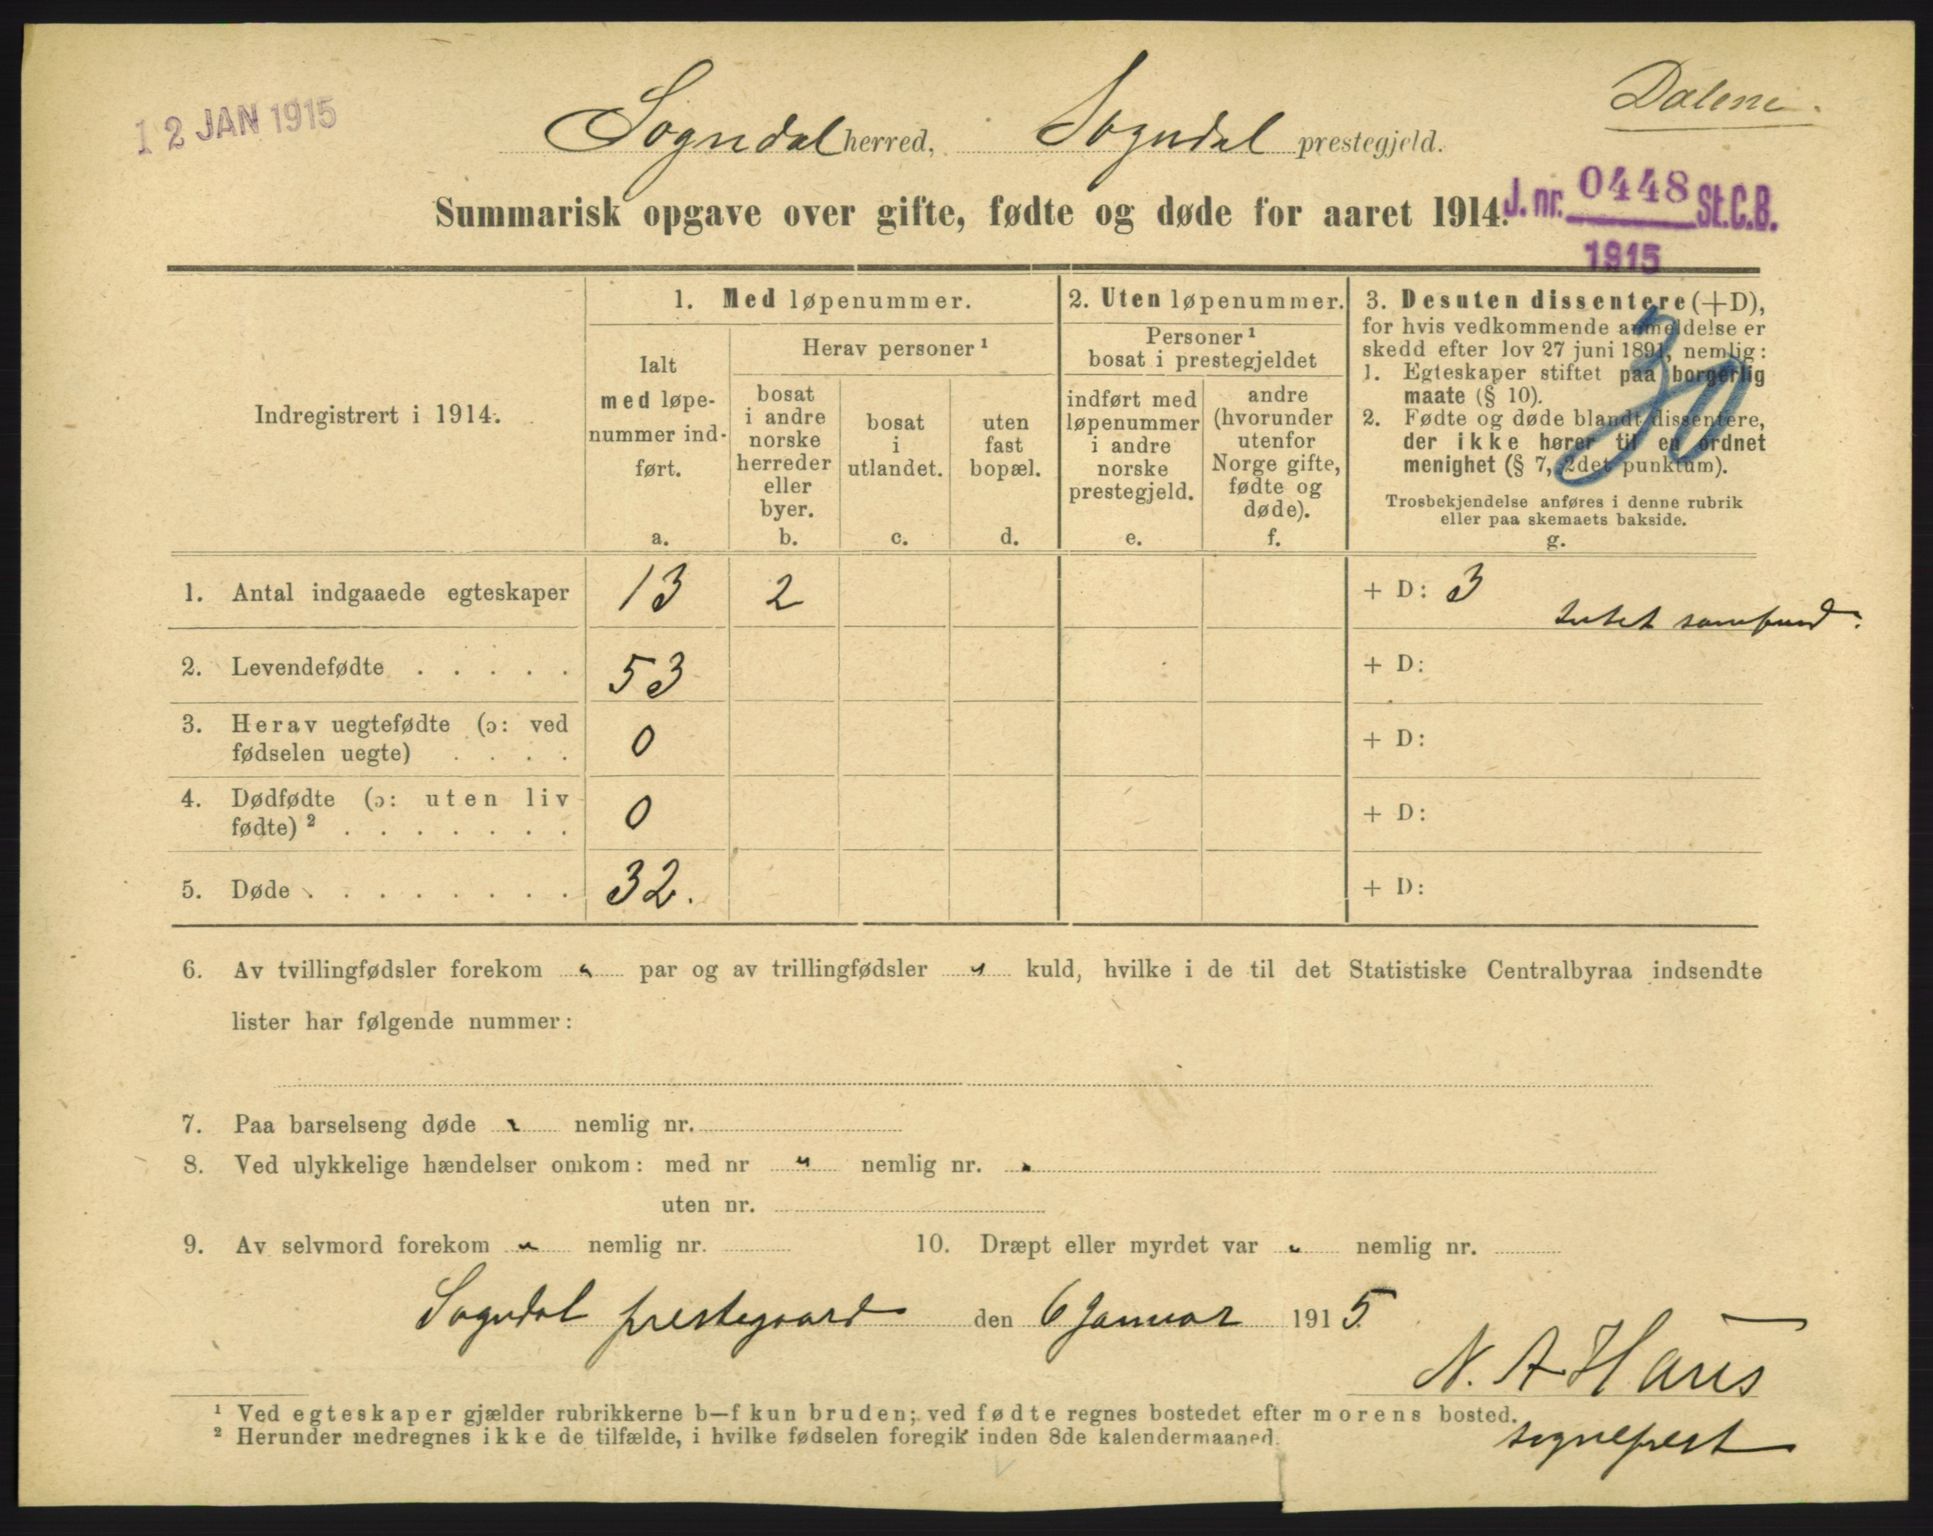 12 JAN 1915
Dalene.
Sogndal herred, Sogndal prestegjeld.
Summarisk opgave over gifte, fødte og døde for aaret 1914.
J. nr. 0448 St.C.B.
1915
Indregistrert i 1914.
1. Med løpenummer.
Ialt
med løpe-
nummer ind-
ført.
a.
Herav personer¹
bosat
i andre
norske
herreder
eller
byer.
b.
bosat
i
utlandet.
c.
uten
fast
bopæl.
d.
2. Uten løpenummer.
Personer¹
bosat i prestegjeldet
indført med
løpenummer
i andre
norske
prestegjeld.
e.
andre
(hvorunder
utenfor
Norge gifte,
fødte og
døde).
f.
3. Desuten dissentere (+D),
for hvis vedkommende anmeldelse er
skedd efter lov 27 juni 1891, nemlig:
1. Egteskaper stiftet paa borgerlig
maate (§ 10).
2. Fødte og døde blandt dissentere,
der ikke hører til en ordnet
menighet (§ 7, 2det punktum).
Trosbekjendelse anføres i denne rubrik
eller paa skemaets bakside.
g.
30
1. Antal indgaaede egteskaper 13 2 + D: 3
intet samfund.
2. Levendefødte . . . . . 53 + D:
3. Herav uegtefødte (ɔ: ved
fødselen uegte) . . . . 0 + D:
4. Dødfødte (ɔ: uten liv
fødte)² . . . . . . . 0 + D:
5. Døde . . . . . . . . 32. + D:
6. Av tvillingfødsler forekom " par og av trillingfødsler " kuld, hvilke i de til det Statistiske Centralbyraa indsendte
lister har følgende nummer:
7. Paa barselseng døde " nemlig nr.
8. Ved ulykkelige hændelser omkom: med nr " nemlig nr. "
uten nr.
9. Av selvmord forekom " nemlig nr. 10. Dræpt eller myrdet var " nemlig nr.
Sogndal prestegaard den 6 Januar 1915.
N. A. Hans
sogneprest
¹ Ved egteskaper gjælder rubrikkerne b—f kun bruden; ved fødte regnes bostedet efter morens bosted.
² Herunder medregnes ikke de tilfælde, i hvilke fødselen foregik inden 8de kalendermaaned.